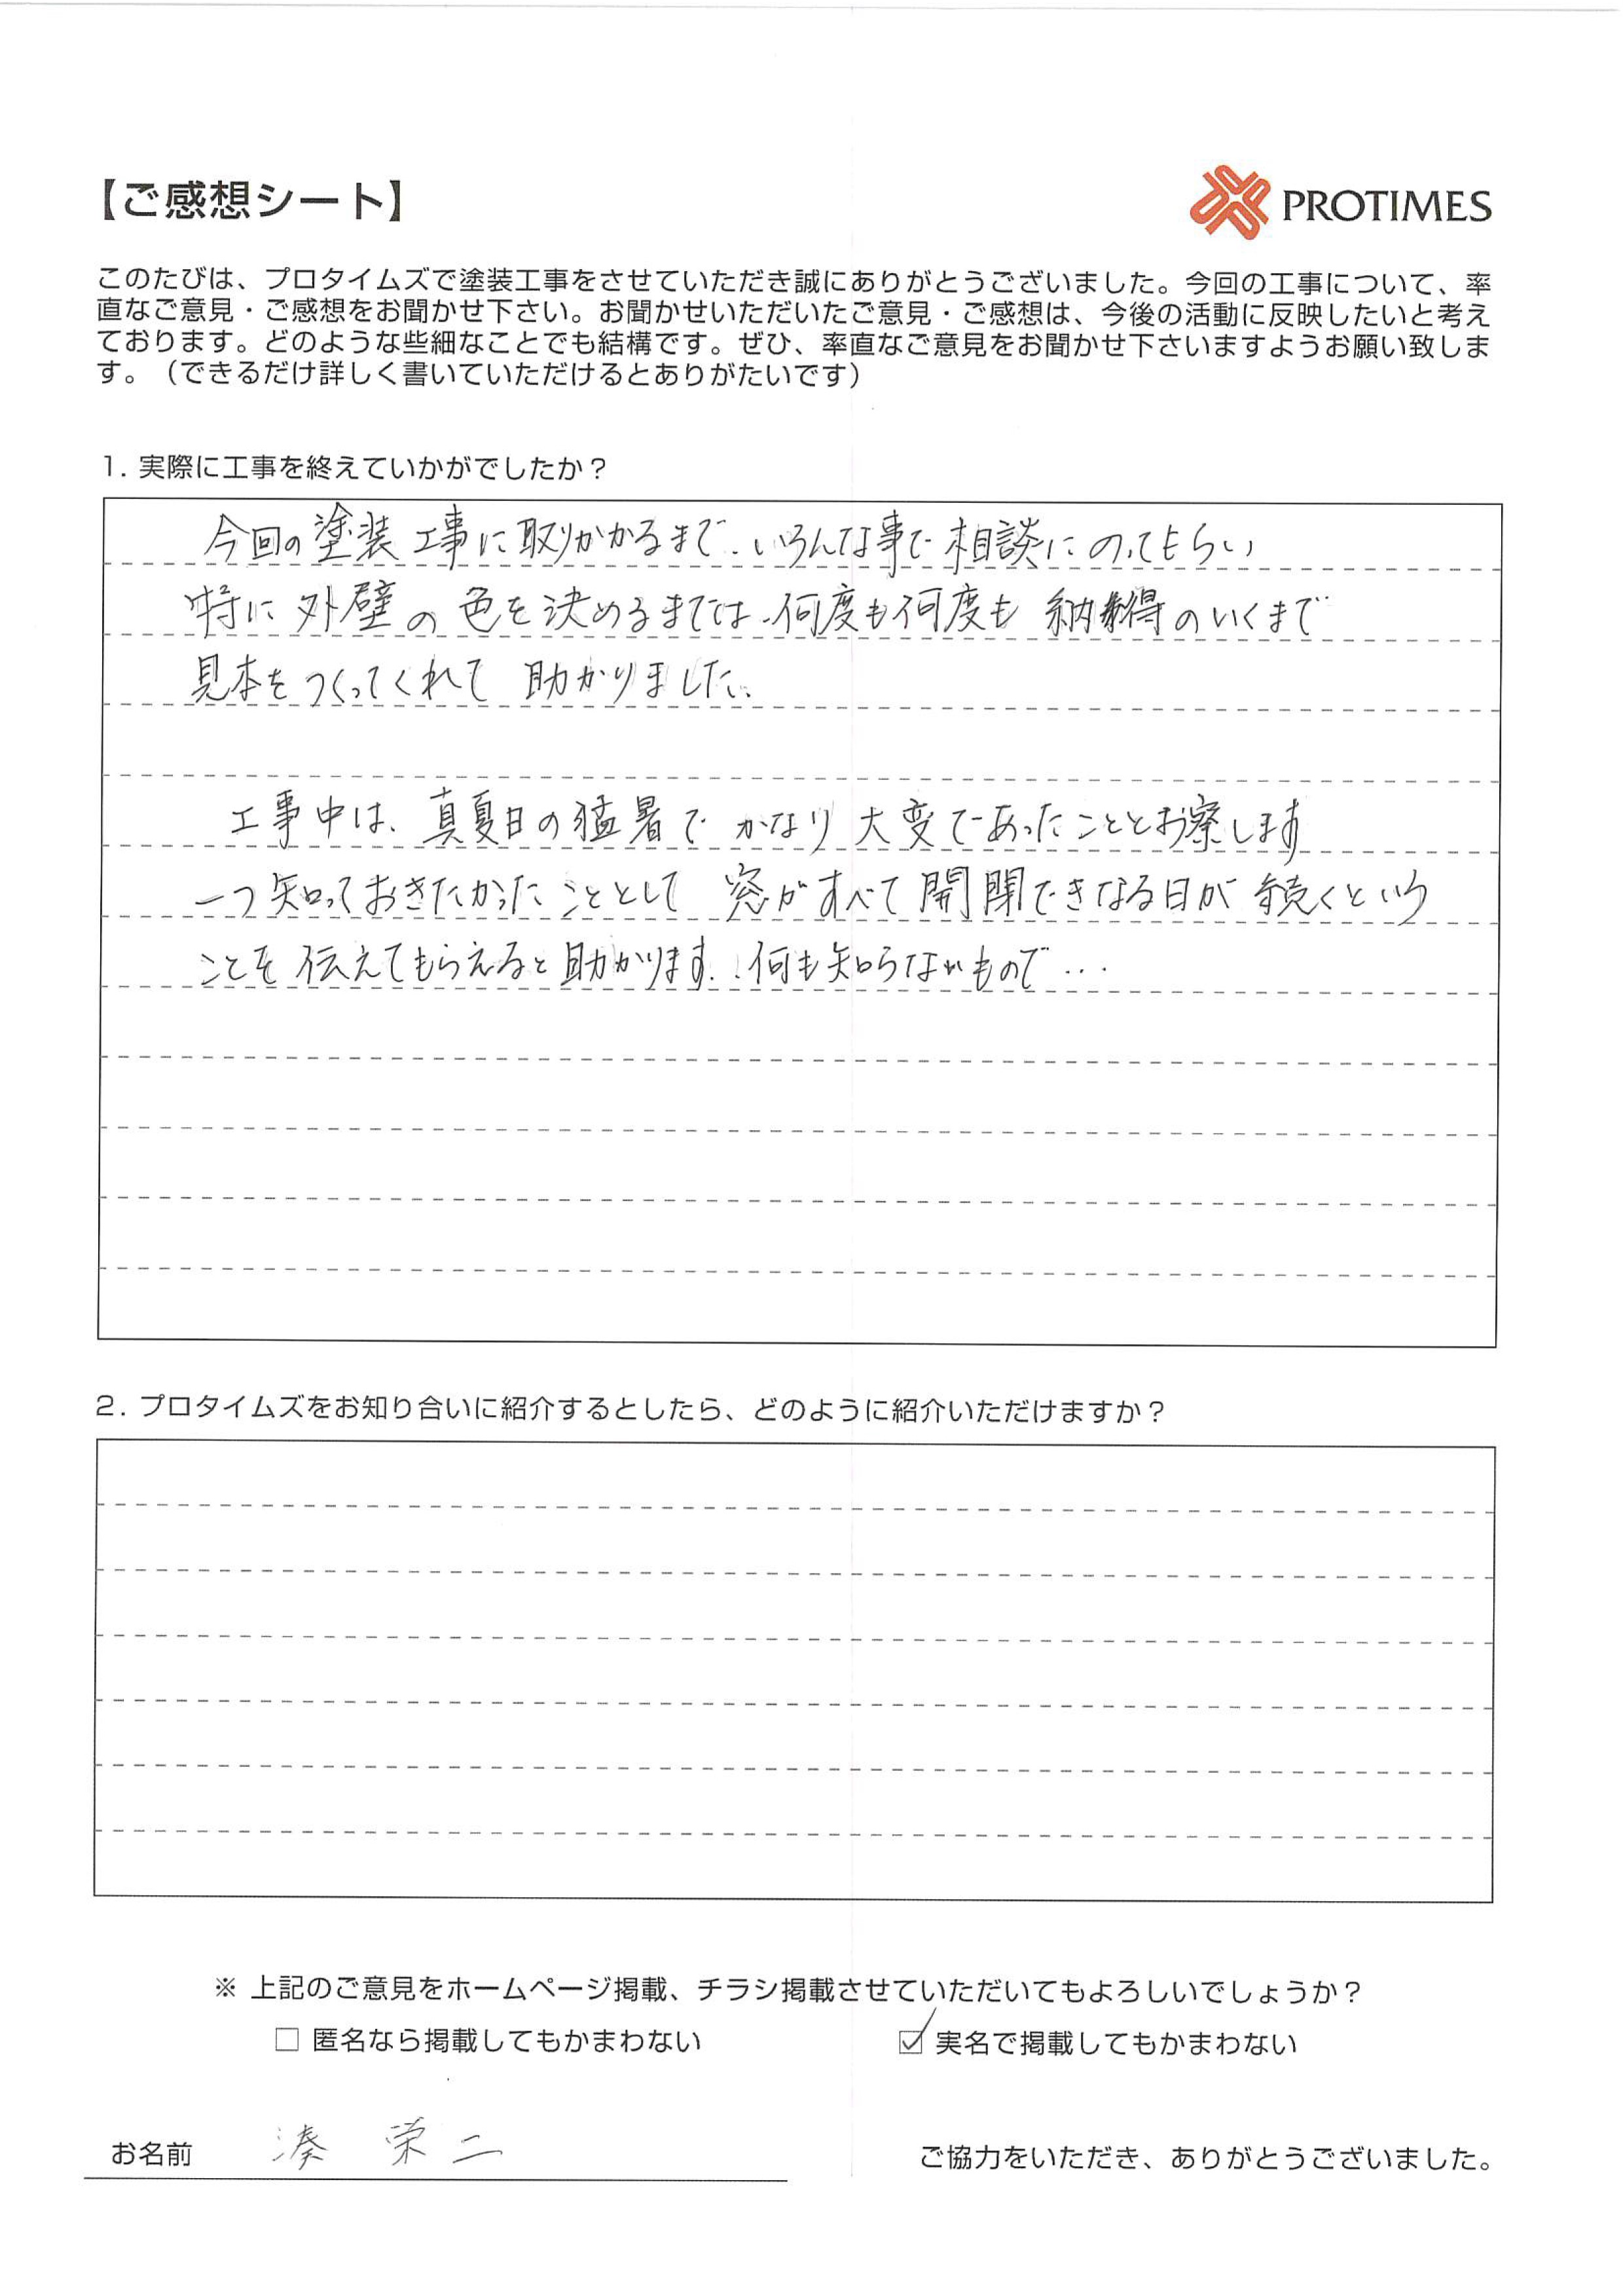 【ご感想シート】
PROTIMES
このたびは、プロタイムズで塗装工事をさせていただき誠にありがとうございました。今回の工事について、率
直なご意見・ご感想をお聞かせ下さい。お聞かせいただいたご意見・ご感想は、今後の活動に反映したいと考え
ております。どのような些細なことでも結構です。ぜひ、率直なご意見をお聞かせ下さいますようお願い致しま
す。（できるだけ詳しく書いていただけるとありがたいです）
1. 実際に工事を終えていかがでしたか？
今回の塗装工事に取りかかるまで、いろんな事で相談にのってもらい
特に外壁の色を決めるまでは、何度も何度も納得のいくまで
見本をつくってくれて助かりました。
工事中は、真夏日の猛暑でかなり大変であったこととお察します
一つ知っておきたかったこととして 窓がすべて開閉できなる日が続くという
ことを伝えてもらえると助かります。何も知らないもので…
2. プロタイムズをお知り合いに紹介するとしたら、どのように紹介いただけますか？
※ 上記のご意見をホームページ掲載、チラシ掲載させていただいてもよろしいでしょうか？
□ 匿名なら掲載してもかまわない
☑ 実名で掲載してもかまわない
お名前 湊 栄二
ご協力をいただき、ありがとうございました。